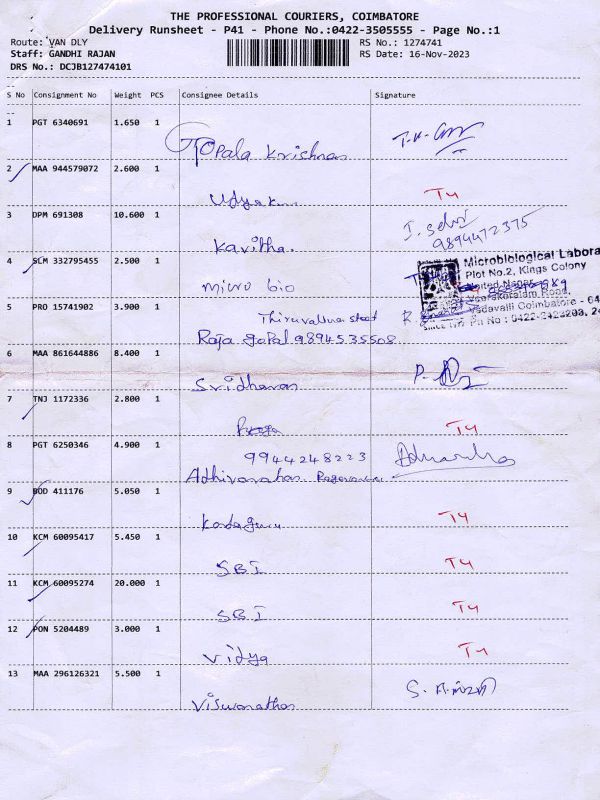 THE PROFESSIONAL COURIERS, COIMBATORE
Delivery Runsheet - P41 - Phone No.:0422-3505555 - Page No.:1
Route: VAN DLY RS No.: 1274741
Staff: GANDHI RAJAN RS Date: 16-Nov-2023
DRS No.: DCJB127474101
S No Consignment No Weight PCS Consignee Details Signature
1 PGT 6340691 1.650 1
Gopala Krishnan
2 MAA 944579072 2.600 1
Udyakum T4
3 DPM 691308 10.600 1
Kavitha. I. Selvi
9894472375
4 SLM 332795455 2.500 1
micro bio
Microbiological Labora
Plot No.2, Kings Colony
United Nagar,
Veerakeralam Road,
Vadavalli Coimbatore - 64
5 PRO 15741902 3.900 1
Raja gopal 9894535508
6 MAA 861644886 8.400 1
Sridharan
7 TNJ 1172336 2.800 1
T4
8 PGT 6250346 4.900 1
9944248223
9 BOD 411176 5.050 1
T4
10 KCM 60095417 5.450 1
SBI T4
11 KCM 60095274 20.000 1
SBI T4
12 PON 5204489 3.000 1
Vidya T4
13 MAA 296126321 5.500 1
Viswanathan